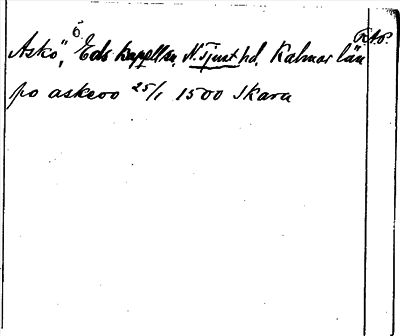 Askö", Ö. Eds kapellsn, N. Tjust hd, Kalmar län
po askeoo 25/1 1500 Skara